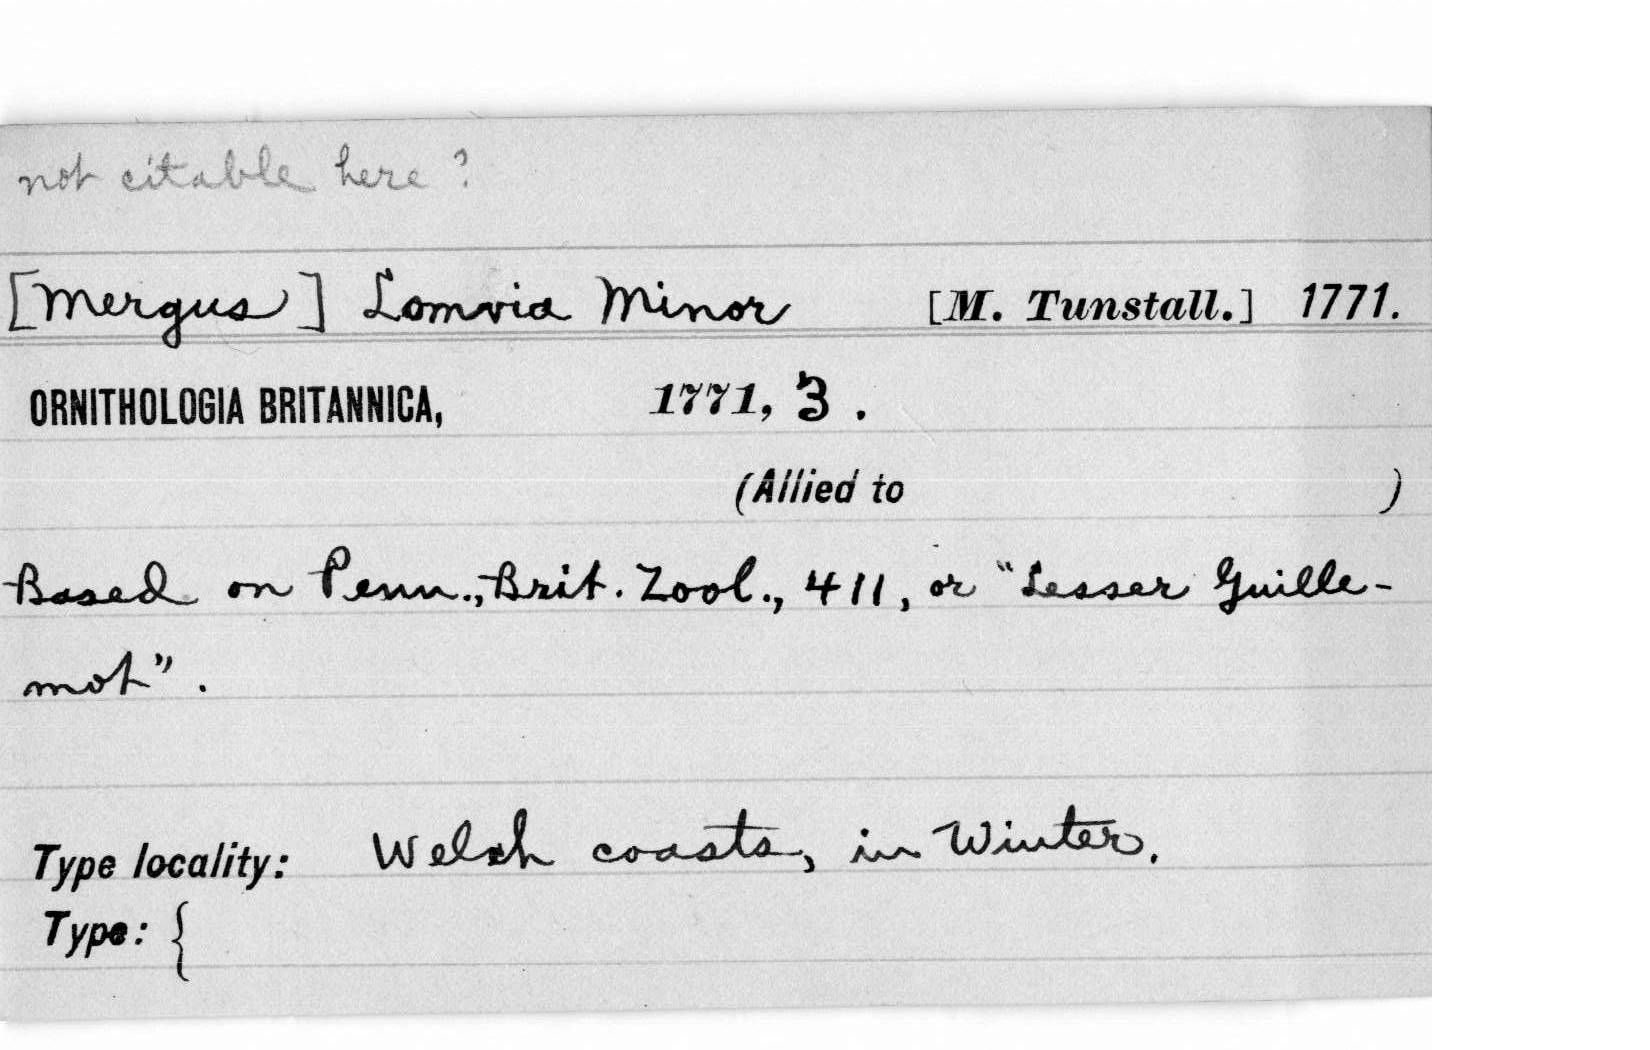 not citable here ?
[Mergus] Lomvia Minor [M. Tunstall.] 1771.
ORNITHOLOGIA BRITANNICA, 1771, 3 .
(Allied to )
Based on Penn., Brit. Zool., 411, or "Lesser Guille-
mot" .
Type locality: Welch coasts, in Winter.
Type: {